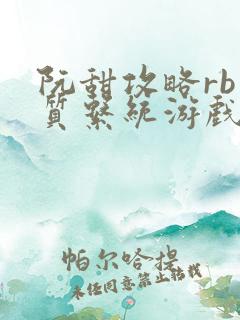 阮甜攻略rb
質繫統游戲
帕尔哈提
未任同意禁止转载